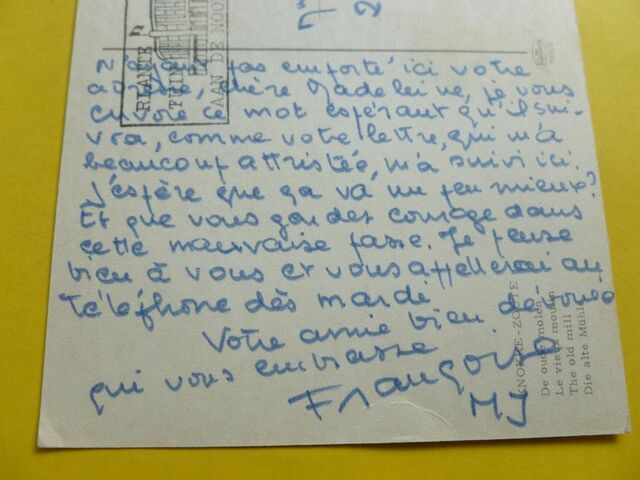 RIANTE
TUIN
AAN DE NOO
7
2
N'ayant pas emporté ici votre
adresse, chère Madeleine, je vous
envoie ce mot espérant qu'il sui-
vra, comme votre lettre, qui m'a
beaucoup attristée, m'a suivi ici.
J'espère que ça va un peu mieux?
Et que vous gardez courage dans
cette mauvaise passe. Je pense
bien à vous et vous appellerai au
téléphone dès mardi
Votre amie bien
qui vous embrasse
Françoise
MJ
KNOKKE-ZOUTE
De oude molen
Le vieux moulin
The old mill
Die alte Mühle